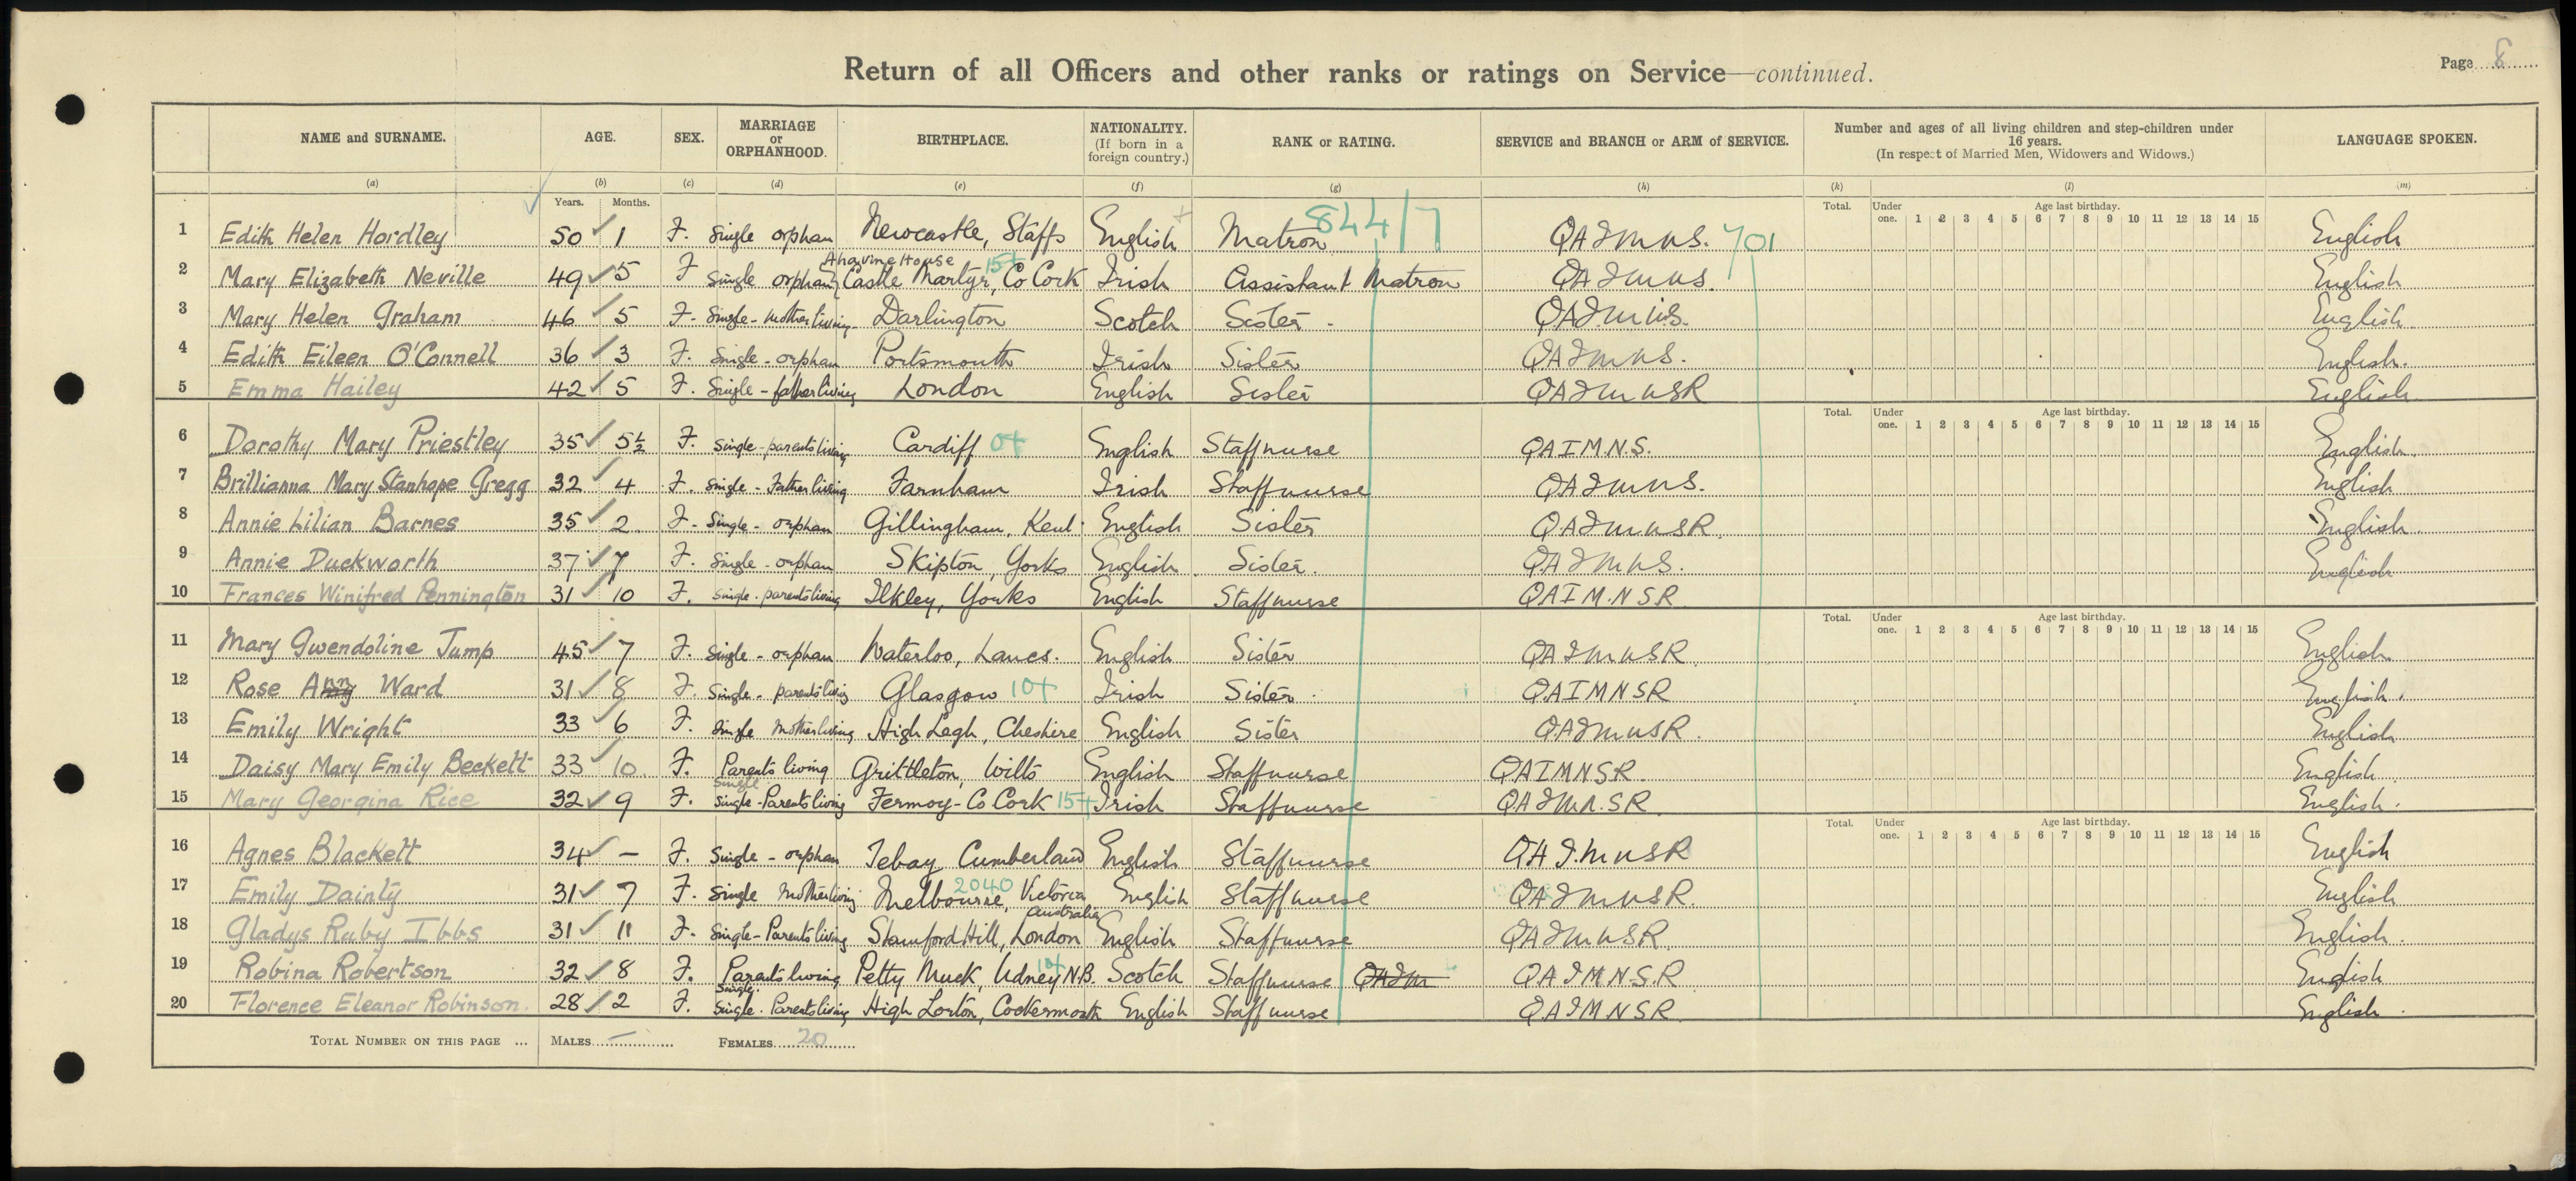 Return of all Officers and other ranks or ratings on Service—continued.
Page 8
NAME and SURNAME. AGE. SEX. MARRIAGE or ORPHANHOOD. BIRTHPLACE. NATIONALITY. (If born in a foreign country.) RANK or RATING. SERVICE and BRANCH or ARM of SERVICE. Number and ages of all living children and step-children under 16 years. (In respect of Married Men, Widowers and Widows.) LANGUAGE SPOKEN.
(a) (b) (c) (d) (e) (f) (g) (h) (k) (l) (m)
Years. Months. Total. Under one. Age last birthday. 1 2 3 4 5 6 7 8 9 10 11 12 13 14 15
844/7
701
1 Edith Helen Hordley 50 1 F. Single orphan Newcastle, Staffs English Matron QAIMNS. English
2 Mary Elizabeth Neville 49 5 F Single orphan Aharine House Castle Martyr, Co Cork 15+ Irish Assistant Matron QAIMNS. English
3 Mary Helen Graham 46 5 F. Single - Mother living Darlington Scotch Sister QAIMNS. English
4 Edith Eileen O'Connell 36 3 F. Single - orphan Portsmouth Irish Sister QAIMNS. English.
5 Emma Hailey 42 5 F. Single - father living London English Sister QAIMNSR English
Total. Under one. Age last birthday. 1 2 3 4 5 6 7 8 9 10 11 12 13 14 15
6 Dorothy Mary Priestley 35 5½ F. Single - parents living Cardiff 0+ English Staff nurse QAIM.N.S. English.
7 Brillianna Mary Stanhope Gregg 32 4 F. Single - Father living Farnham Irish Staff nurse QAIMNS. English
8 Annie Lilian Barnes 35 2 F. Single - orphan Gillingham, Kent English Sister QAIMNSR. English.
9 Annie Duckworth 37 7 F. Single - orphan Skipton, Yorks English Sister. QAIMNS. English
10 Frances Winifred Pennington 31 10 F. Single. parents living Ilkley, Yorks English Staff nurse QAIM.NSR English
Total. Under one. Age last birthday. 1 2 3 4 5 6 7 8 9 10 11 12 13 14 15
11 Mary Gwendoline Jump 45 7 F. Single - orphan Waterloo, Lancs. English Sister QAIMNSR. English
12 Rose Ann Ward 31 8 F. Single - parents living Glasgow 10+ Irish Sister QAIMNSR English.
13 Emily Wright 33 6 F. Single Mother living High Legh, Cheshire English Sister QAIMNSR. English
14 Daisy Mary Emily Beckett 33 10 F. Parents living Single Grittleton, Wilts English Staff nurse QAIMNSR. English
15 Mary Georgina Rice 32 9 F. Single - Parents living Fermoy - Co Cork 15+ Irish Staff nurse QAIMN.SR. English.
Total. Under one. Age last birthday. 1 2 3 4 5 6 7 8 9 10 11 12 13 14 15
16 Agnes Blackett 34 — F. Single - orphan Tebay Cumberland English Staff nurse QAI.MNSR English
17 Emily Dainty 31 7 F. Single Mother living Melbourne, Victoria Australia 2040 English Staff nurse QAIMNSR. English
18 Gladys Ruby Ibbs 31 11 F. Single - Parents living Stamford Hill, London English Staff nurse QAIMNSR. English.
19 Robina Robertson 32 8 F. Parents living Single. Petty Muck, Udney N.B. 10+ Scotch Staff nurse QAIM QAIMN.S.R. English
20 Florence Eleanor Robinson. 28 2 F. Single. Parents living High Lorton, Cockermouth English Staff nurse QAIMNSR. English.
TOTAL NUMBER ON THIS PAGE ... MALES — FEMALES 20